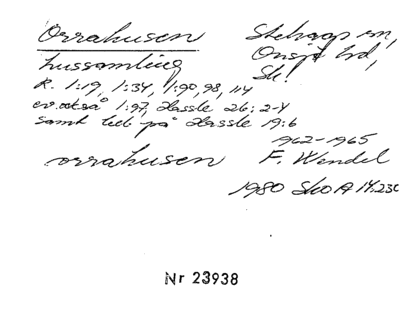 Orrahusen Stehags sn,
Onsjö hd,
hussamling Sk!
R. 1:19, 1:34, 1:90,98, 114
ev. också 1:97, Hassle 26:2-4
samt leb på Hassle 19:6
1962-1965
orrahusen F. Wendel
1980 SkO A 14.230
Nr 23938